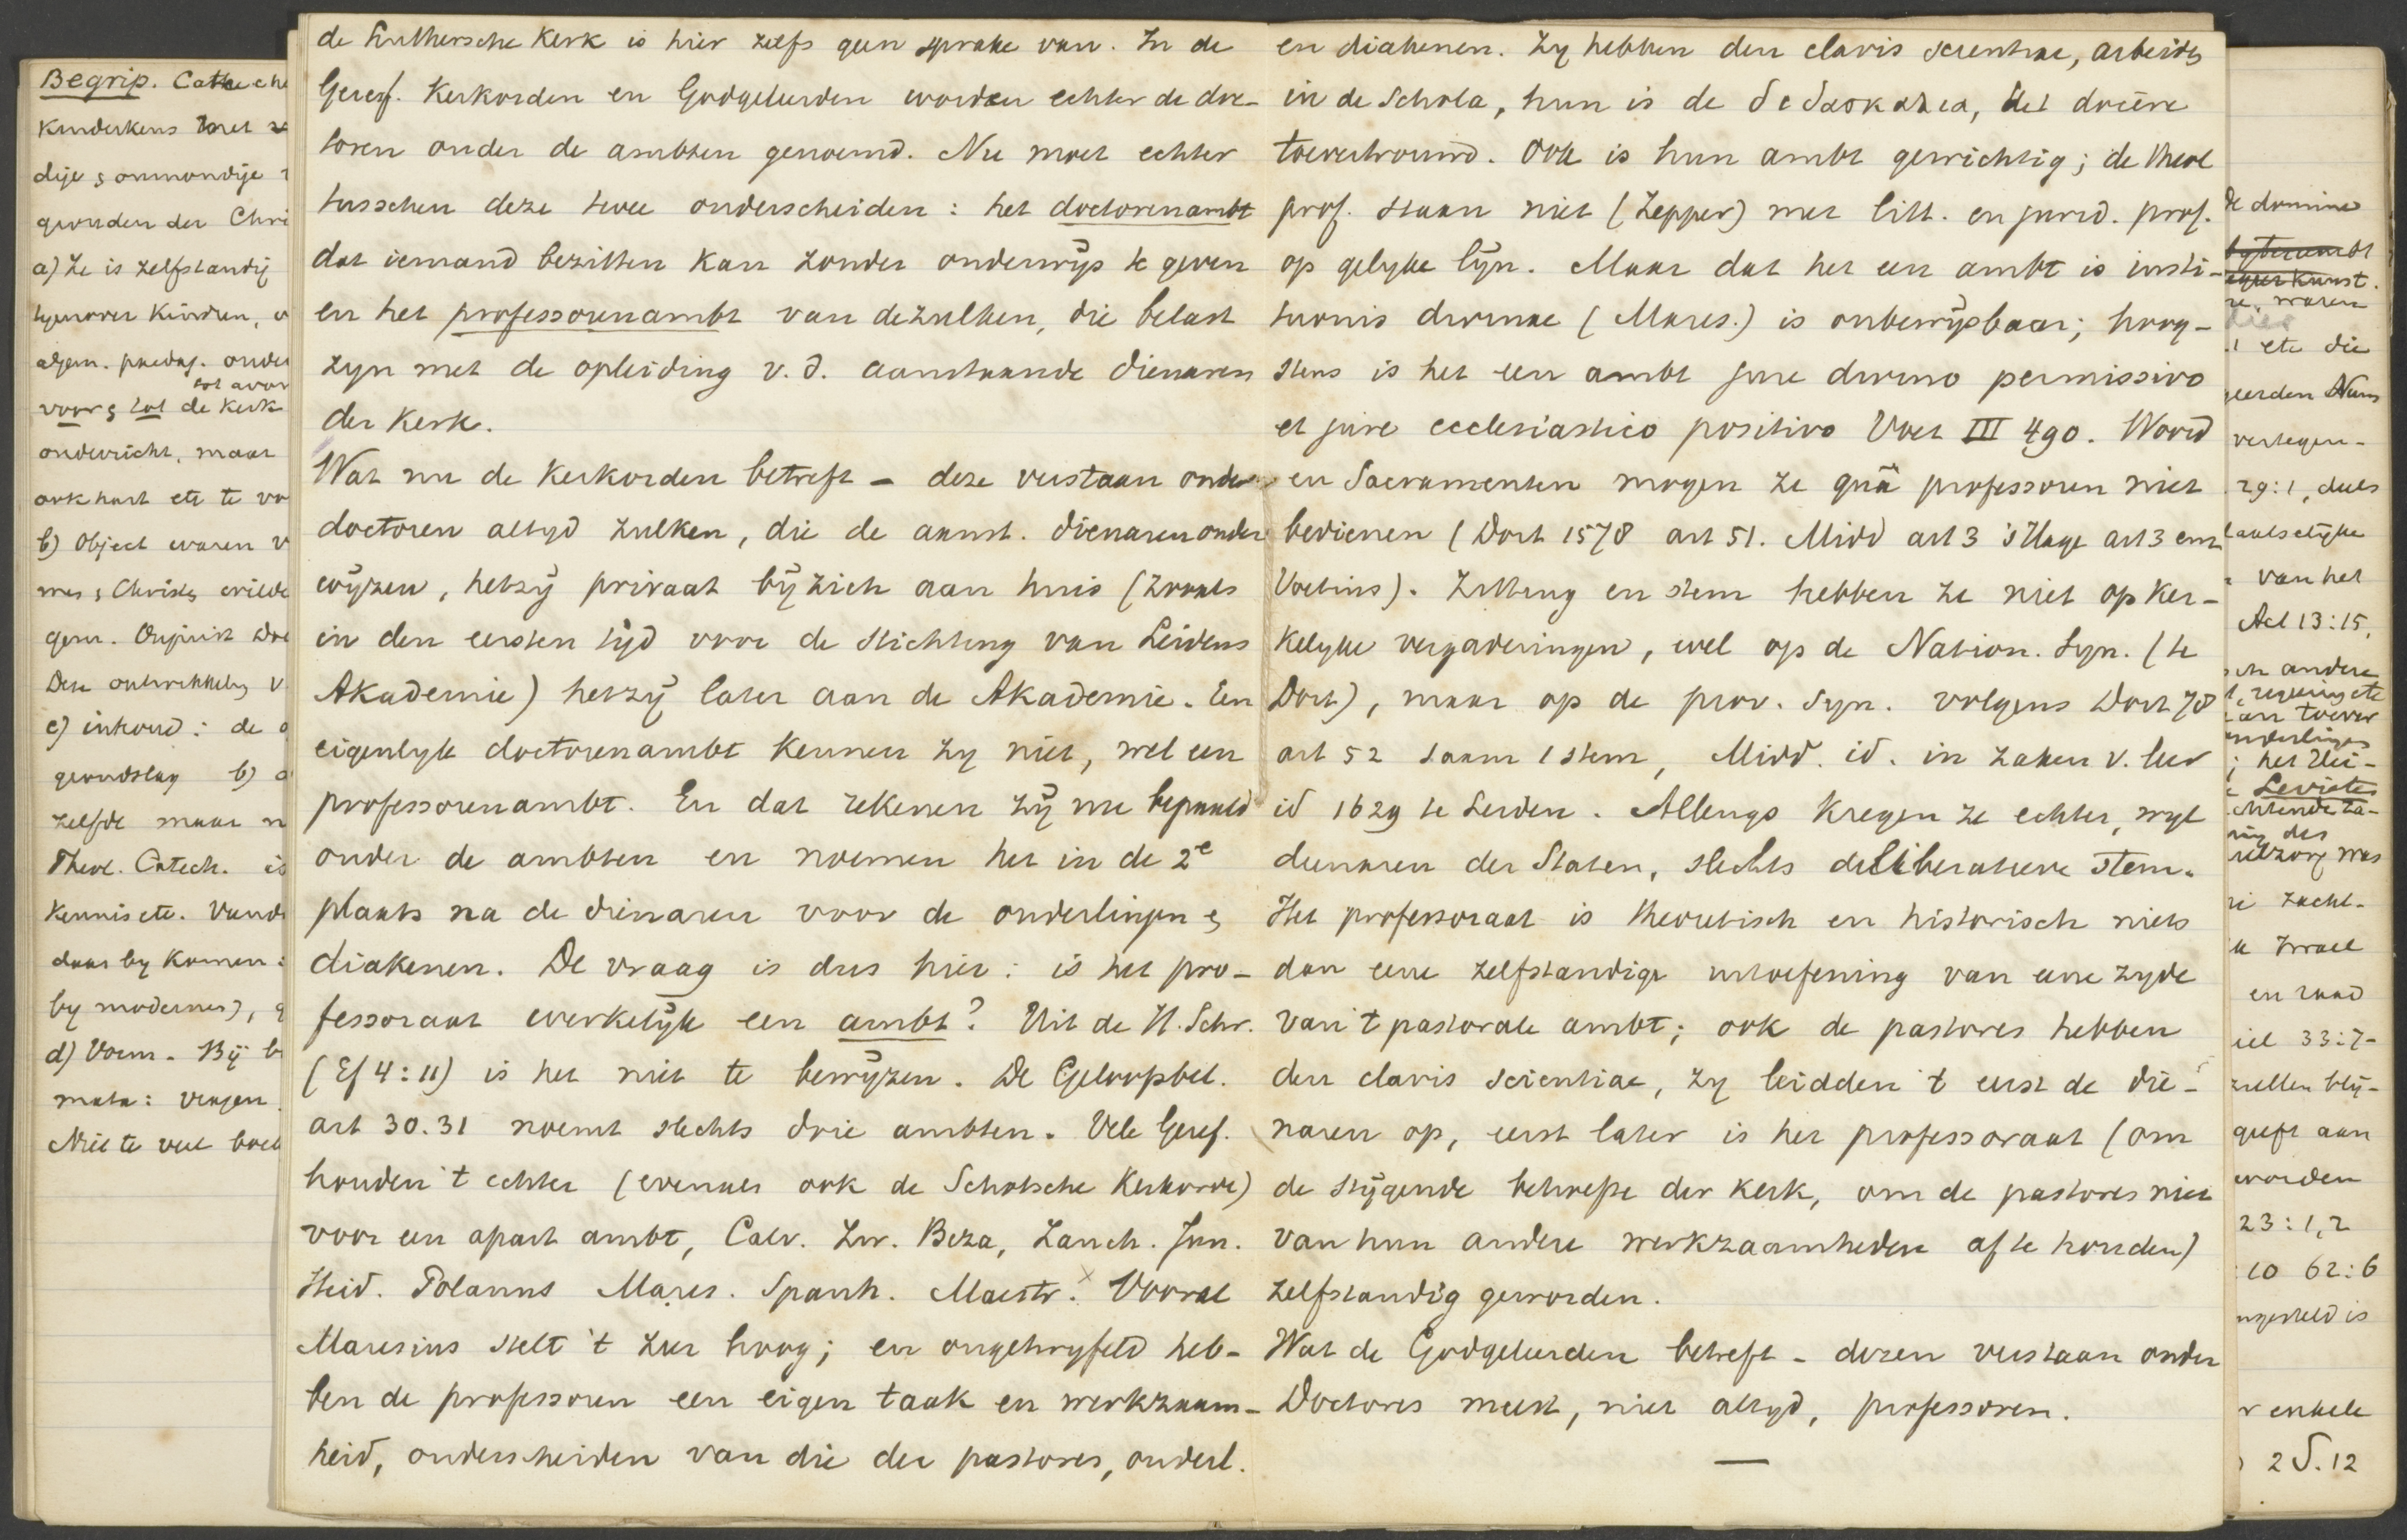 de Luthersche Kerk is hier zelfs geen sprake van. In de
Geref. Kerkorden en Godgeleerden worden echter de doc-
toren onder de ambten genoemd. Nu moet echter
tusschen deze twee onderscheiden: het doctorenambt
dat iemand bezitten kan zonder onderwijs te geven
en het professorenambt van dezulken, die belast
zyn met de opleiding v. d. aanstaande dienaren
der Kerk.
Wat nu de Kerkorden betreft - deze verstaan onder
doctoren altyd zulken, die de aanst. dienaren onder
wijzen, hetzij privaat bij zich aan huis (zooals
in den eersten tijd voor de stichting van Leidens
Akademie) hetzij later aan de Akademie. Een
eigenlyk doctorenambt kennen zy niet, wel een
professorenambt. En dat rekenen zij nu bepaald
onder de ambten en noemen het in de 2e
plaats na de dienaren voor de onderlingen &
diakenen. De vraag is dus hier: is het pro-
fessoraat werkelijk een ambt? Uit de H. Schr.
(Ef 4:11) is het niet te bewijzen. De Geloofsbel.
art 30.31 noemt slechts drie ambten. Vele Geref.
houden 't echter (evenals ook de Schotsche Kerkorde)
voor een apart ambt, Calv. Zw. Beza, Zanch. Jun.
Heid. Polanus Mares. Spanh. Maestr. x Vooral
Maresius stelt 't zeer hoog; en ongetwyfeld heb-
ben de professoren een eigen taak en werkzaam-
heid, onderscheiden van die der pastores, onderl.
en diakenen. Zy hebben den clavis scientiae, arbeiden
in de Schola, hun is de διδασκαλια, het docere
toevertrouwd. Ook is hun ambt gewichtig; de theol
prof. staan niet (Zepper) met litt. en jurid. prof.
op gelyke lijn. Maar dat het een ambt is insti-
tutionis divinae (Mares.) is onbewijsbaar; hoog-
stens is het een ambt jure divino permissivo
et jure ecclesiastico positivo Voet III 490. Woord
en Sacramenten mogen ze quâ professoren niet
bedienen (Dort 1578 art 51. Midd art 3 's Hage art 3 en
Voetius). Zitting en stem hebben ze niet op ker-
kelyke vergaderingen, wel op de Nation. Syn. (te
Dort), maar op de prov. Syn. volgens Dort 78
art 52 saam 1 stem, Midd. id. in zaken v. leer
id 1629 te Leiden. Allengs kregen ze echter, wyl
dienaren der Staten, slechts deliberatieve stem.
Het professoraat is theoretisch en historisch niets
dan eene zelfstandige uitoefening van eene zyde
van 't pastorale ambt; ook de pastores hebben
den clavis scientiae, zy leidden 't eerst de die-
naren op, eerst later is het professoraat (om
de stijgende behoefte der kerk, om de pastores niet
van hun andere werkzaamheden af te houden)
zelfstandig geworden.
Wat de Godgeleerden betreft - dezen verstaan onder
Doctores meest, niet altyd, professoren.
—
Begrip. Cateche
Kinderkens
dije & onmondije
gronden der Chri
a) Ze is zelfstandig
tegenover Kindren,
algem. paedag. onder
voor & tot de kerk
onderricht, maar
ook hart etc te vo
b) Object waren
mes & Christus wilde
c) inhoud: de
grondslag b)
zelfde maar
Theol. Catech. is
Kennis etc.
daar by komen:
by modernes),
d) Vorm. Bij
mata: vragen
Niet te veel
de dominé
waren
etc die
vertegen-
29:1, deels
van het
Act 13:15,
andere
Levieten
Israel
en raad
iel 33:7-
zullen blij-
geeft aan
worden
23:1,2
10 62:6
enkele
2 S. 12